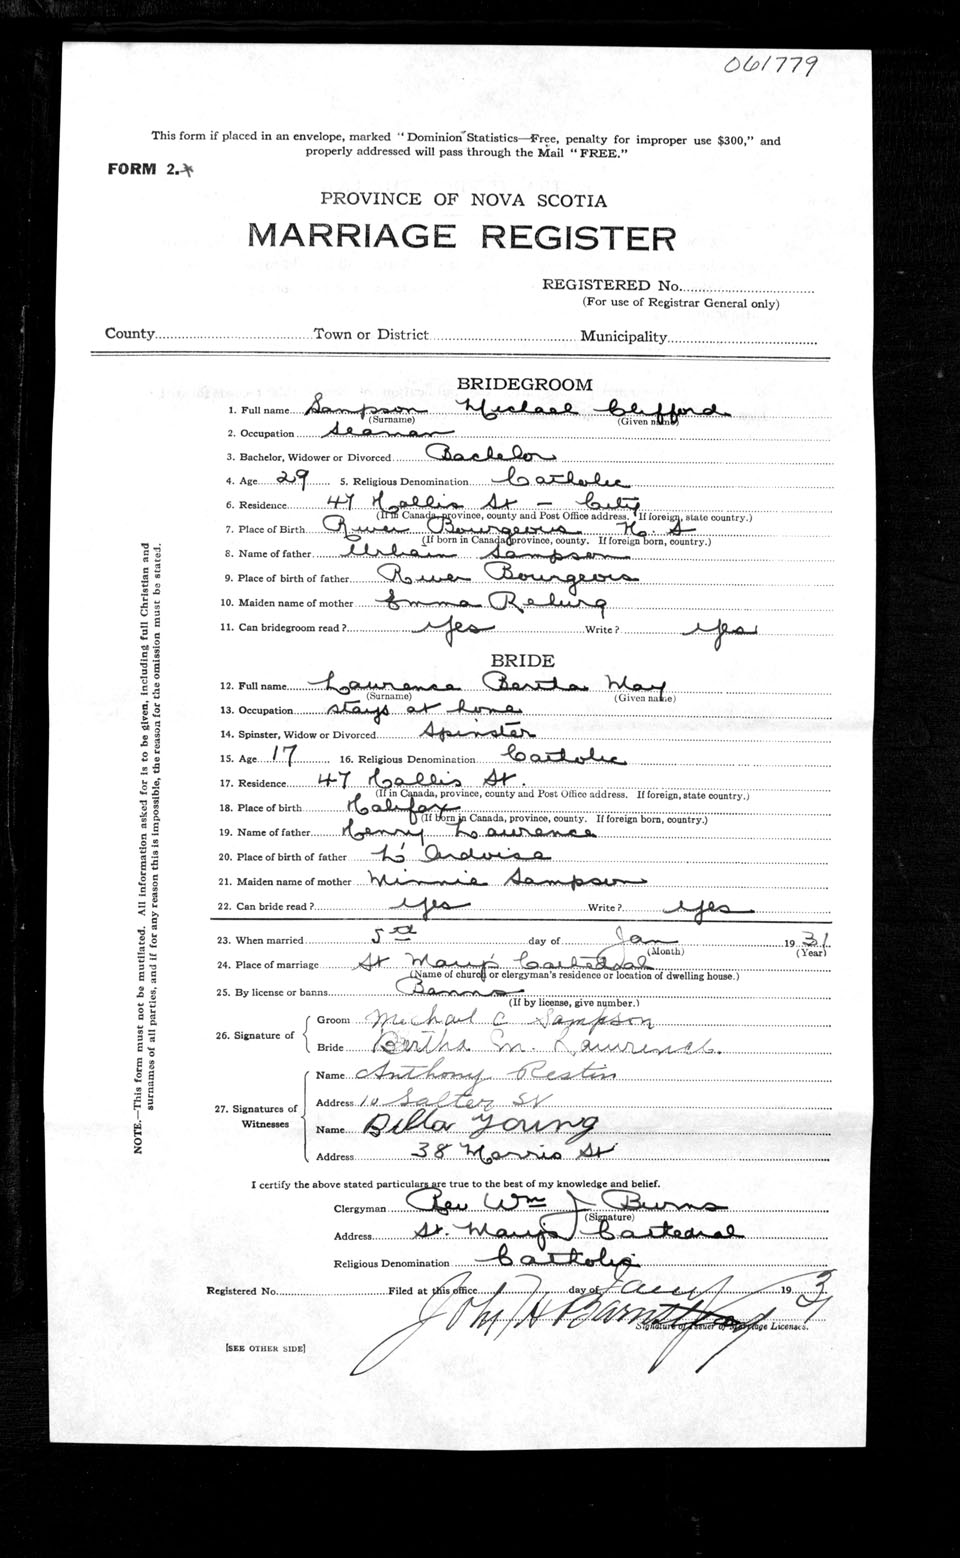 061779
This form if placed in an envelope, marked "Dominion Statistics—Free, penalty for improper use $300," and
properly addressed will pass through the Mail "FREE."
FORM 2.
PROVINCE OF NOVA SCOTIA
MARRIAGE REGISTER
REGISTERED No.
(For use of Registrar General only)
County Town or District Municipality
BRIDEGROOM
1. Full name Sampson Michael Clifford
(Surname) (Given name)
2. Occupation Seaman
3. Bachelor, Widower or Divorced Bachelor
4. Age 29 5. Religious Denomination Catholic
6. Residence 47 Hollis St – City
(If in Canada, province, county and Post Office address. If foreign, state country.)
7. Place of Birth River Bourgeois N. S
(If born in Canada province, county. If foreign born, country.)
8. Name of father Urbain Sampson
9. Place of birth of father River Bourgeois
10. Maiden name of mother Emma
11. Can bridegroom read? yes Write? yes
BRIDE
12. Full name Lawrence Bertha May
(Surname) (Given name)
13. Occupation stays at home
14. Spinster, Widow or Divorced Spinster
15. Age 17 16. Religious Denomination Catholic
17. Residence 47 Hollis St.
(If in Canada, province, county and Post Office address. If foreign, state country.)
18. Place of birth Halifax
(If born in Canada, province, county. If foreign born, country.)
19. Name of father Henry Lawrence
20. Place of birth of father L'Ardoise
21. Maiden name of mother Minnie Sampson
22. Can bride read? yes Write? yes
23. When married 5th day of Jan 1931.
(Month) (Year)
24. Place of marriage St Mary's Cathedral
(Name of church or clergyman's residence or location of dwelling house.)
25. By license or banns Banns
(If by license, give number.)
26. Signature of
Groom Michael C Sampson
Bride Bertha M. Lawrence.
27. Signatures of Witnesses
Name Anthony Restin
Address 10 Salter St
Name Billa Young
Address 38 Morris St
I certify the above stated particulars are true to the best of my knowledge and belief.
Clergyman Rev Wm J Burns
(Signature)
Address St. Mary's Cathedral
Religious Denomination Catholic
Registered No. Filed at this office day of Jany 1931
John H Barnstead
Signature of Issuer of Marriage Licenses.
[SEE OTHER SIDE]
NOTE.—This form must not be mutilated. All information asked for is to be given, including full Christian and
surnames of all parties, and if for any reason this is impossible, the reason for the omission must be stated.